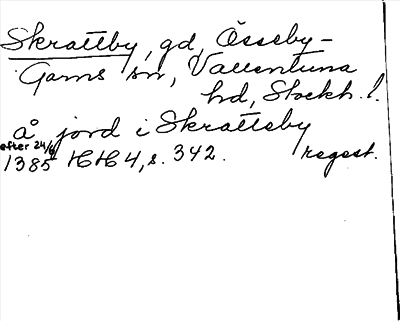 Skrattby, gd, Össeby-
Garns sn, Vallentuna
hd, Stockh. l.
å jord i Skrattaby
efter 24/6
1385 HH 4, s. 342. regest.